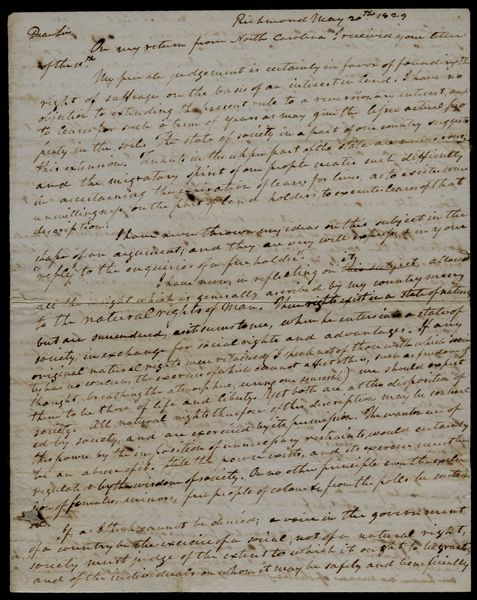 Richmond May 20th 1829
Dear Sir
On my return from North Carolina I received your letter
of the 10th
My private judgement is certainly in favor of founding the
right of suffrage on the basis of an interest in land. I have no
objection to extending the present rule to a reversionary interest, and
to leases for such a term of years as may give the lessee actual pro
perty in the soil. The state of society in a part of our country suggests
this extension. Tenants in the upper part of the state are numerous
and the migratory spirit of our people creates such difficulty
in ascertaining the expiration of leases for lives as to excite some
unwillingness on the part of land holders to execute leases of that
description.
I have never thrown my ideas on this subject in the
shape of an argument, and they are very well expressed in your
reply to the enquiries of a freeholder.
I have never, in reflecting on it, this subject, allowed
all the weight which is generally ascribed by my country men
to the natural rights of man. These rights exist in a state of nature
but are surrendered, when he enters into a state of
society, in exchange for social rights and advantages. If any
original natural rights were retained (I speak not of those with which society
has no concern, the exercise of which cannot affect others, such as freedom of
thought, breathing the atmosphere, using our senses &c) one should expect
them to be those of life and liberty. Yet both are at the disposition of
society. All natural rights therefore of this description may be control
ed by society, and are exercised by its permission. The wanton use of
this power by the imposition of unnecessary restraints, would certainly
be an abuse of it. Still the power exists, and its exercise must be
regulated by the wisdom of society. On no other principle can the exclu
sion of females, minors, free people of colour &c from the polls be sustain
ed.
If, as I think cannot be denied, a voice in the government
of a country be the exercise of a social, not of a natural right,
society must judge of the extent to which it ought to be granted
and of the individuals on whom it may be safely and beneficially